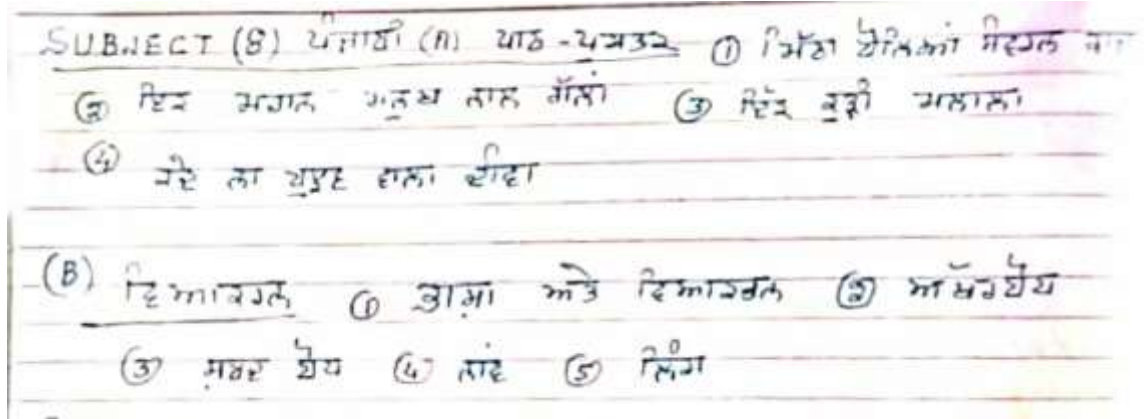 SUBJECT (8) ਪੰਜਾਬੀ (A) ਪਾਠ-ਪੁਸਤਕ ① ਮਿੱਠਾ ਬੋਲਿਆਂ
② ਇਕ ਮਹਾਨ ਮਨੁੱਖ ਨਾਲ ਗੱਲਾਂ ③ ਇੱਕ ਕੁੜੀ ਮਲਾਲਾ
④ ਕਦੇ ਨਾ ਬੁਝਣ ਵਾਲਾ ਦੀਵਾ
(B) ਵਿਆਕਰਨ ① ਭਾਸ਼ਾ ਅਤੇ ਵਿਆਕਰਨ ② ਅੱਖਰਬੋਧ
③ ਸ਼ਬਦ ਬੋਧ ④ ਨਾਂਵ ⑤ ਲਿੰਗ